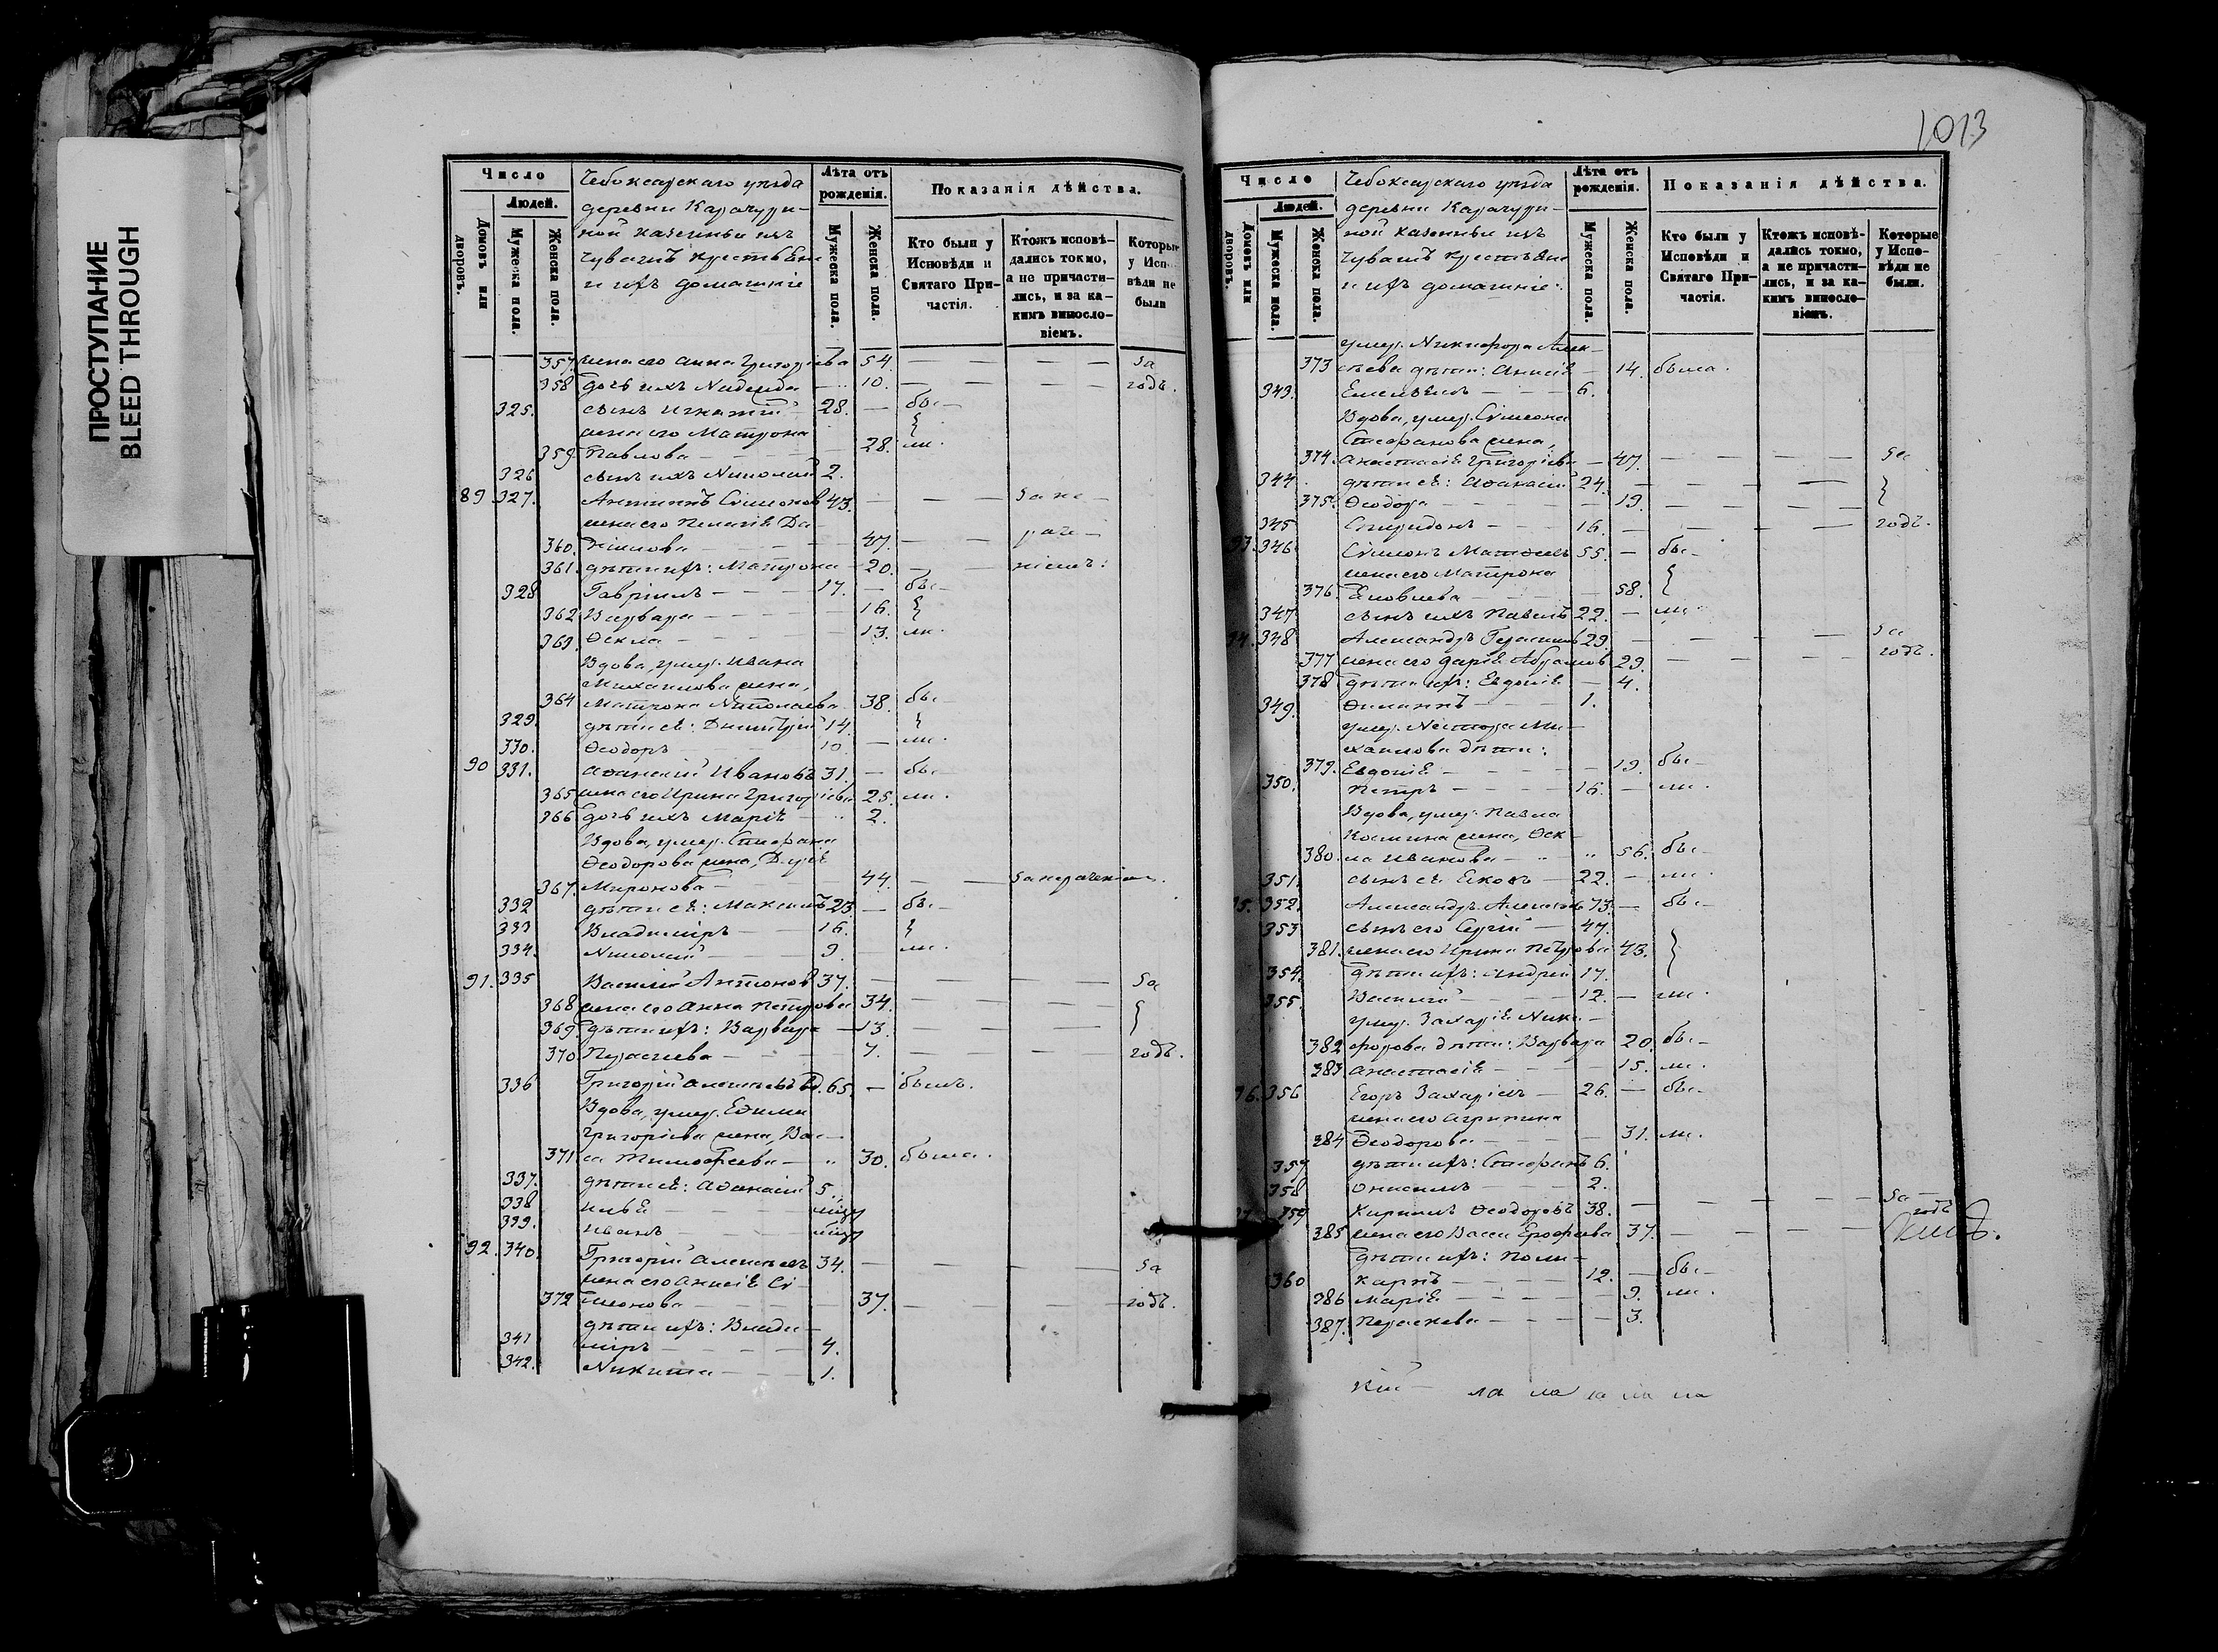 ПРОСТУПАНИЕ
BLEED THROUGH
Число
Людей.
Домовъ или дворовъ.
Мужеска пола.
Женска пола.
Чебоксарскаго уѣзда
деревни Карачури-
ной казенныи изъ
Чувашъ крестьяне
и ихъ домашніе
Лѣта отъ рожденія.
Мужеска пола.
Женска пола.
Показанія дѣйства.
Кто были у Исповѣди и Святаго Причастія.
Ктожъ исповѣдались токмо, а не причастились, и за какимъ винословіемъ.
Которые у Исповѣди не были
357. жена его Анна Григорьева 54. — — — за
358 дочь ихъ Надежда — 10. — — — годъ.
325. сынъ Игнатій 28. — бы-
жена его Матрона
359 Павлова — 28. ли.
326 сынъ ихъ Николай 2.
89 327. Антипъ Симоновъ 43. — — за не-
жена его Пелагія Да-
360. ніилова — 47. — — раче-
361. дѣти ихъ: Матрона — 20. — — ніемъ:
328 Гавріилъ — 17. — бы-
362 Варвара — 16.
363. Ѳекла — 13. ли.
Вдова, умер. Ивана
Михаилова жена,
364 Матрона Николаева 38. бы-
329. дѣти её: Димитрій 14.
330. Ѳеодоръ 10 — ли.
90 331. Аѳанасій Ивановъ 31. — бы-
365 жена его Ирина Григорьева 25. ли.
366 дочь ихъ Марія — 2.
Вдова, умер. Стефана
Ѳеодорова жена, Дарія
367. Миронова — 44. — — за нераченіемъ.
332 дѣти её: Максимъ 23 — бы-
333 Владиміръ — 16.
334. Николай — 9. ли.
91. 335 Василій Антоновъ 37. — — — за
368 жена его Анна Петрова 34. — — —
369. дѣти ихъ: Варвара — 13. — — —
370 Параскева — 7. — — — годъ.
336 Григорій Алексѣевъ 65. — былъ.
Вдова, умер. Еѳима
Григорьева жена, Вас-
371. са Тимоѳеева — 30. была.
337. дѣти её: Аѳанасій 5.
338 Илья —
339. Иванъ —
92. 340. Григорій Алексѣевъ 34. — — — за
жена его Анисія Си-
372 меонова — 37. — — — годъ.
дѣти ихъ: Влади-
341 міръ — 4.
342. Никита — 1.
1013
Число
Людей.
Домовъ или дворовъ.
Мужеска пола.
Женска пола.
Чебоксарскаго уѣзда
деревни Карачури-
ной казенныи изъ
Чувашъ крестьяне
и ихъ домашніе:
Лѣта отъ рожденія.
Мужеска пола.
Женска пола.
Показанія дѣйства.
Кто были у Исповѣди и Святаго Причастія.
Ктожъ исповѣдались токмо, а не причастились, и за какимъ винословіемъ.
Которые у Исповѣди не были.
умер. Никифора Алек-
373 сѣева дѣти: Анисія — 14. была.
343. Емельянъ — 6.
Вдова, умер. Симеона
Стефанова жена,
374. Анастасія Григорьева — 47. — — — за
344. дѣти её: Аѳанасій 24. — — —
375. Ѳеодора — 19. — — —
345 Спиридонъ — 16. — — — годъ.
93. 346 Симеонъ Матвѣевъ 55. — бы-
жена его Матрона
376. Яковлева — 58.
347. сынъ ихъ Павелъ 22. — ли.
94. 348 Александръ Герасимовъ 29. — — — за
377 жена его Дарія Абрамова 29. — — — годъ.
378 дѣти ихъ: Евдокія — 4.
349. Филиппъ — 1.
умер. Нестора Ми-
хаилова дѣти:
379. Евдокія — 19. бы-
350. Петръ — 16. — ли.
Вдова, умер. Павла
Козмина жена, Ѳек-
380. ла Иванова — 56. бы-
351. сынъ её Яковъ — 22. — ли.
95. 352. Александръ Алексѣевъ 73. — бы-
353 сынъ его Сергій — 47.
381. жена его Ирина Петрова 43.
354. дѣти ихъ: Андрей 17.
355. Василій — 12. — ли.
умер. Захарія Ники-
382 форова дѣти: Варвара 20. бы-
383 Анастасія — 15. ли.
96. 356 Егоръ Захаріевъ — 26. — бы-
жена его Агрипина
384 Ѳеодорова — 31. ли.
357 дѣти ихъ: Стефанъ 6.
358 Онисимъ — 2.
97. 359 Кириллъ Ѳеодоровъ 38. — — — за
годъ
385 жена его Васса Ерофеева 37. — — —
дѣти ихъ: Поли-
360 карпъ — 12. — бы-
386 Марія — 9. ли.
387. Параскева — 3.